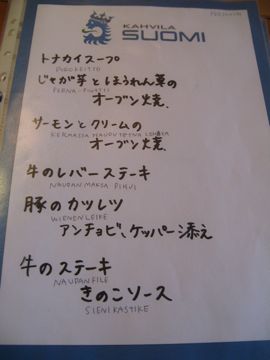 KAHVILA
SUOMI
トナカイスープ
POROKEITTO
じゃが芋とほうれん草の
PERUNA-PINAATTI
オーブン焼
サーモンとクリームの
オーブン焼
牛のレバーステーキ
NAUDAN MAKSA PIHVI
豚のカツレツ
WIENENLEIKE
アンチョビ、ケッパー添え
牛のステーキ
NAUDANFILE
きのこソース
SIENIKASTIKE